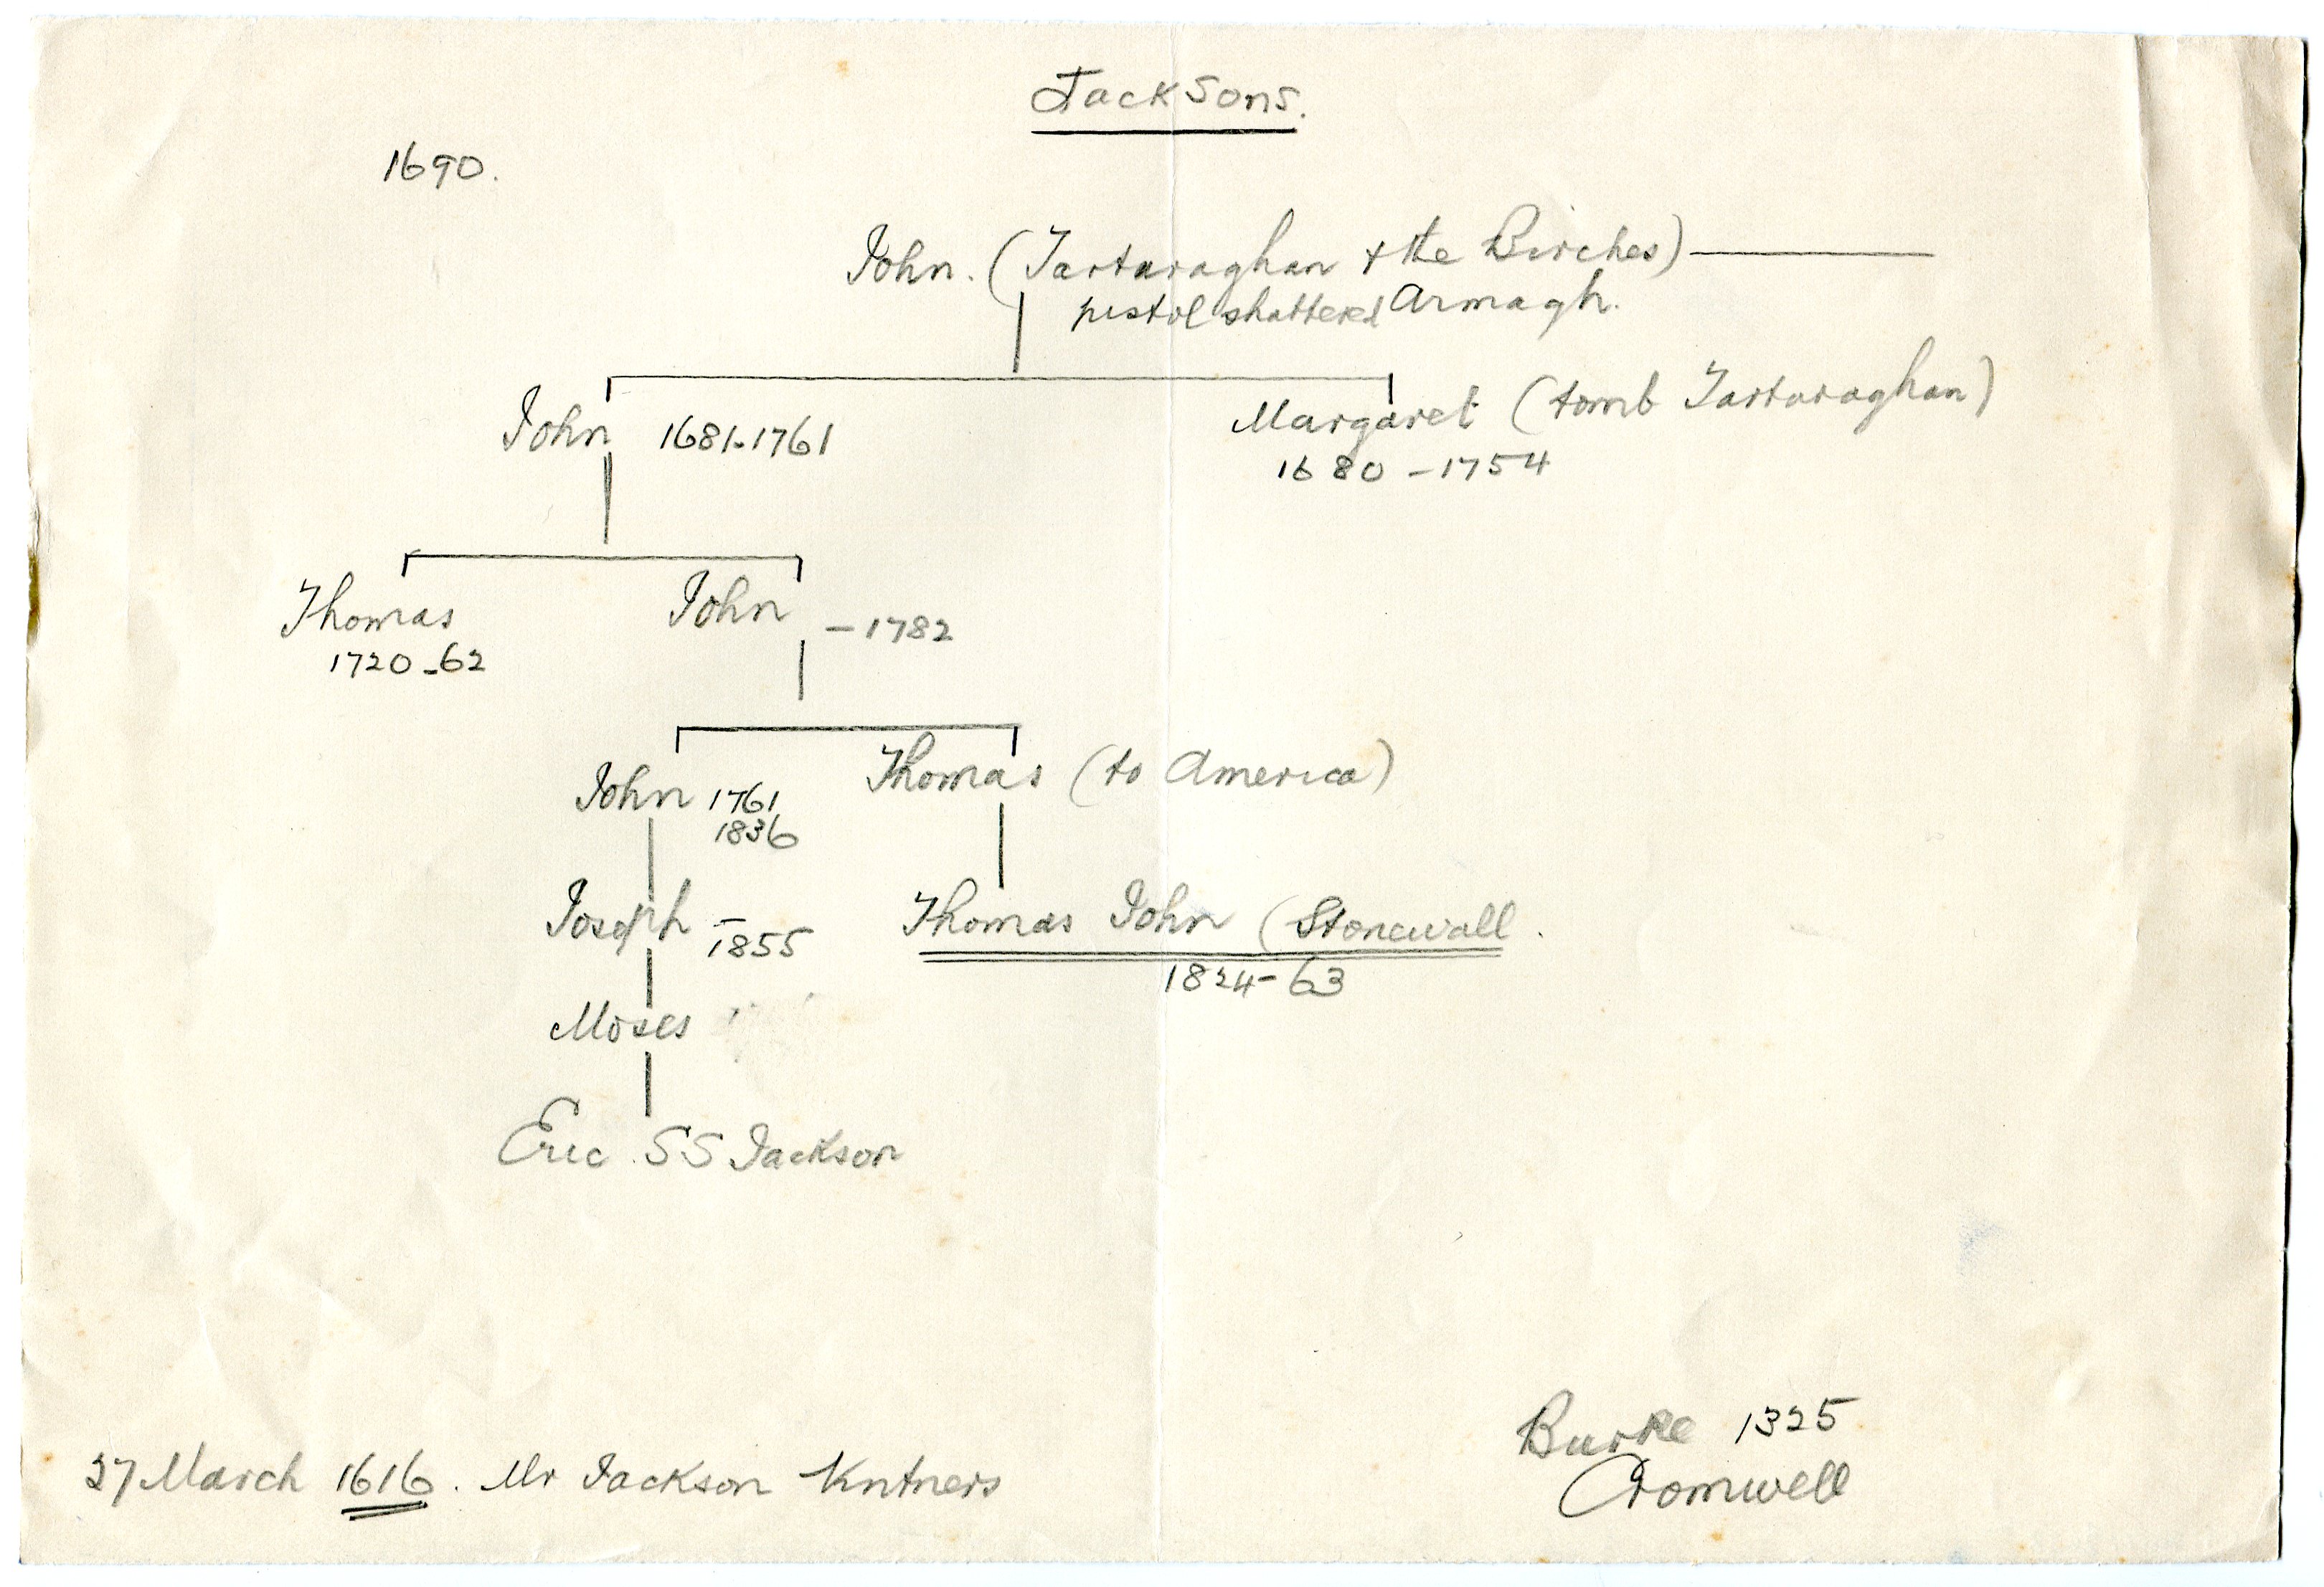 Jacksons.
1690.
John. (Tartaraghan & the Birches)
pistol shattered Armagh.
John 1681-1761
Margaret (tomb Tartaraghan)
1680 - 1754
Thomas
1720-62
John - 1782
John 1761
1836
Thomas (to America)
Joseph - 1855
Thomas John (Stonewall.
1824-63
Moses
Eric SS Jackson
27 March 1616. Mr Jackson Vntners
Burke 1325
Cromwell